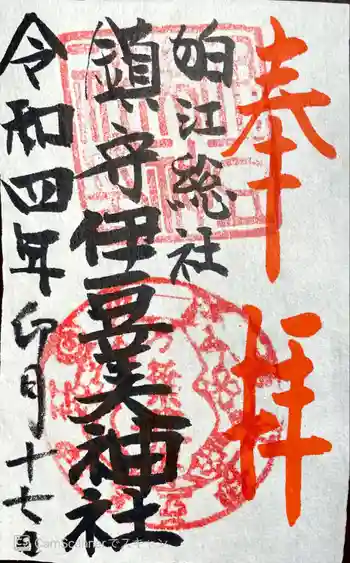 奉拝
狛江総社
鎮守伊豆美神社
令和四年卯月十七日
CamScannerでスキャン